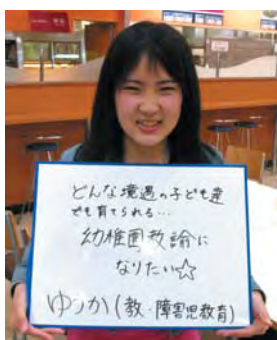 どんな境遇の子ども達
でも育てられる…
幼稚園教諭に
なりたい☆
ゆうか(教・障害児教育)